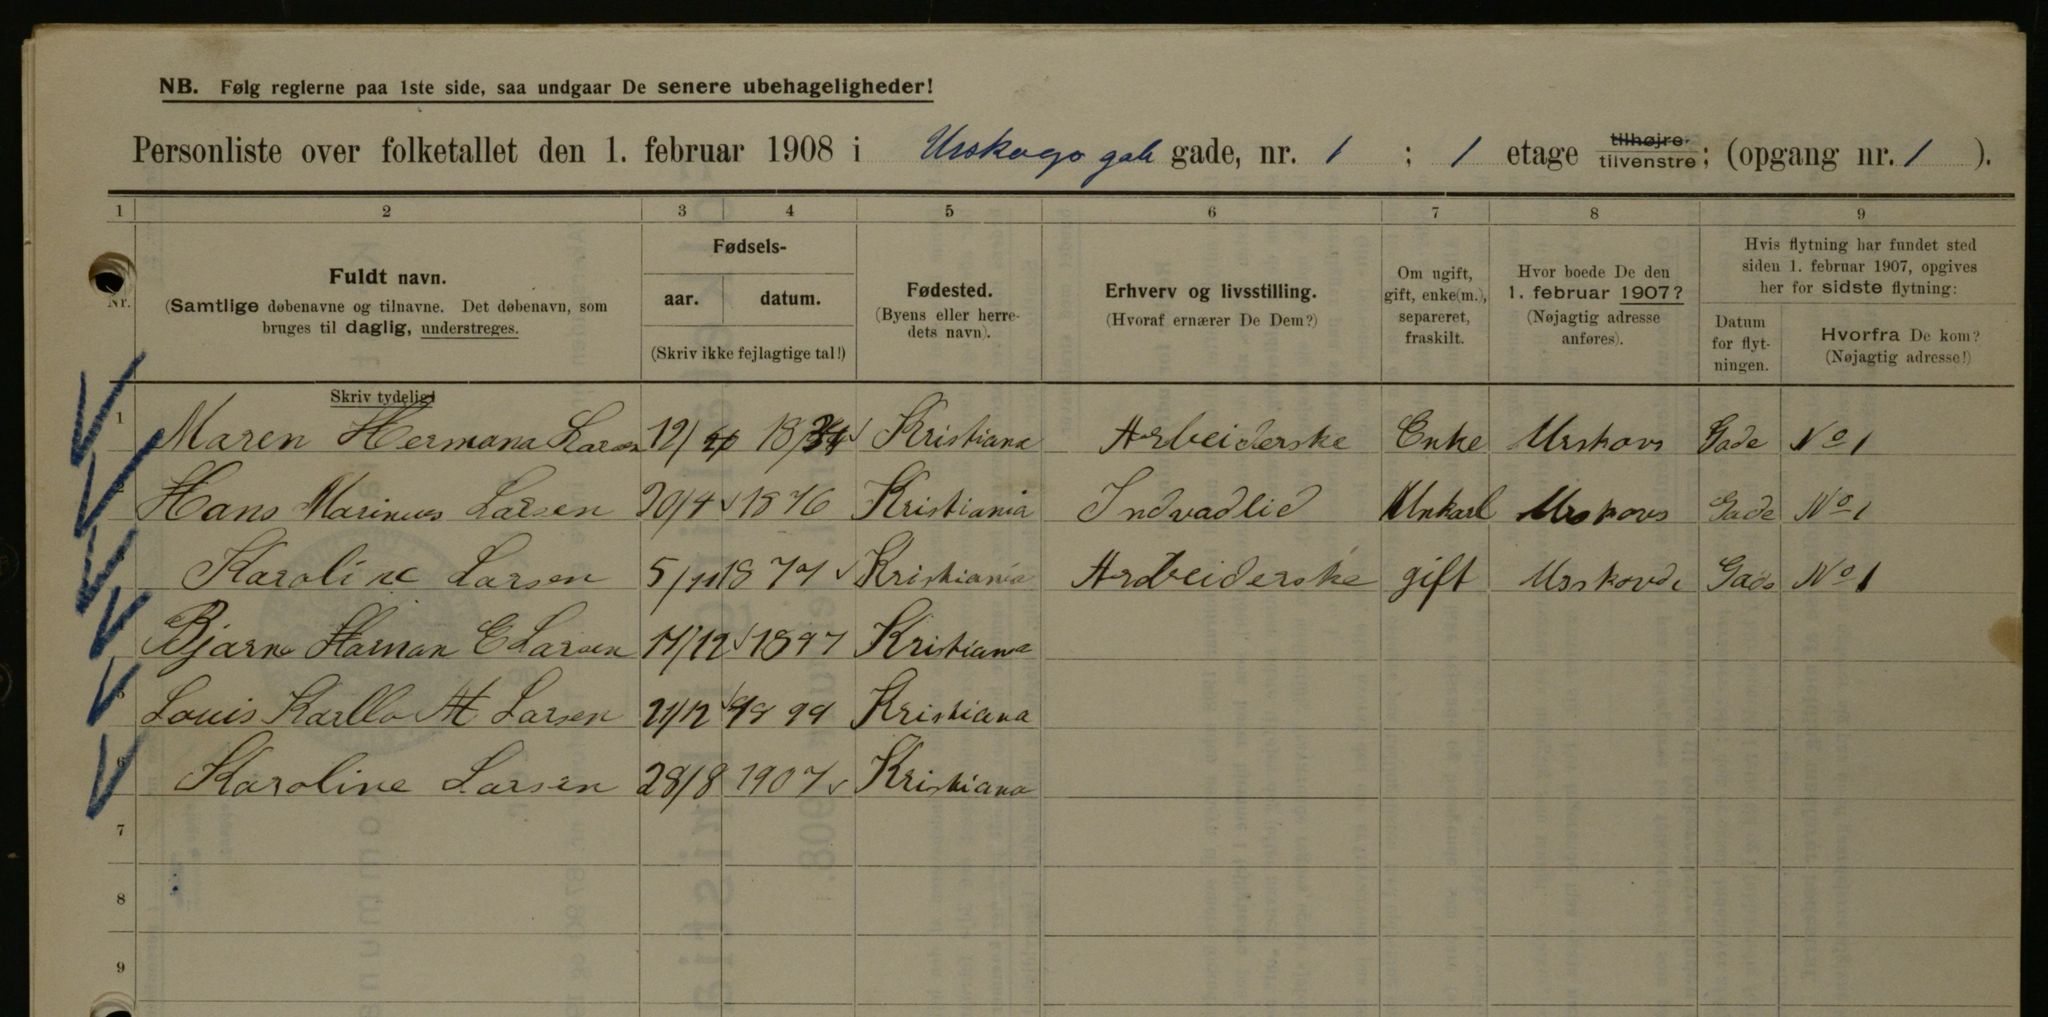 NB. Følg reglerne paa 1ste side, saa undgaar De senere ubehageligheder!
Personliste over folketallet den 1. februar 1908 i Urskogs gade gade, nr. 1 ; 1 etage tilhøjre tilvenstre; (opgang nr. 1 ).
1 2 3 4 5 6 7 8 9
Nr.
Fuldt navn.
(Samtlige døbenavne og tilnavne. Det døbenavn, som
bruges til daglig, understreges.
Fødsels-
aar. datum.
(Skriv ikke fejlagtige tal!)
Fødested.
(Byens eller herre-
dets navn).
Erhverv og livsstilling.
(Hvoraf ernærer De Dem?)
Om ugift,
gift, enke(m.),
separeret,
fraskilt.
Hvor boede De den
1. februar 1907?
(Nøjagtig adresse
anføres).
Hvis flytning har fundet sted
siden 1. februar 1907, opgives
her for sidste flytning:
Datum
for flyt-
ningen.
Hvorfra De kom?
(Nøjagtig adresse!)
Skriv tydelig!
1 Maren Hermana Larsen 12/ 18 Kristiana Arbeiderske Enke Urskovs Gade No 1
2 Hans Marinus Larsen 20/4 1876 Kristiania Indvadlid Unkarl Urskovs Gade No 1
3 Karoline Larsen 5/11 1877 Kristiania Ardbeiderske gift Urskovds Gade No 1
Bjarne Harman E Larsen 17/12 1897 Kristiana
5 Louis Karllo M Larsen 21/12 1899 Kristiana
6 Karoline Larsen 28/8 1907 Kristiana
7
8
9